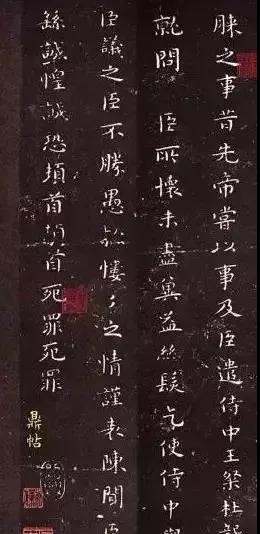 膝之事昔先帝嘗以事及臣遣侍中王粲杜襲
就問 臣所懷未盡冀益絲髮乞使侍中與
臣議之臣不勝愚款慺々之情謹表陳聞臣
繇誠惶誠恐頓首頓首死罪死罪
鼎帖